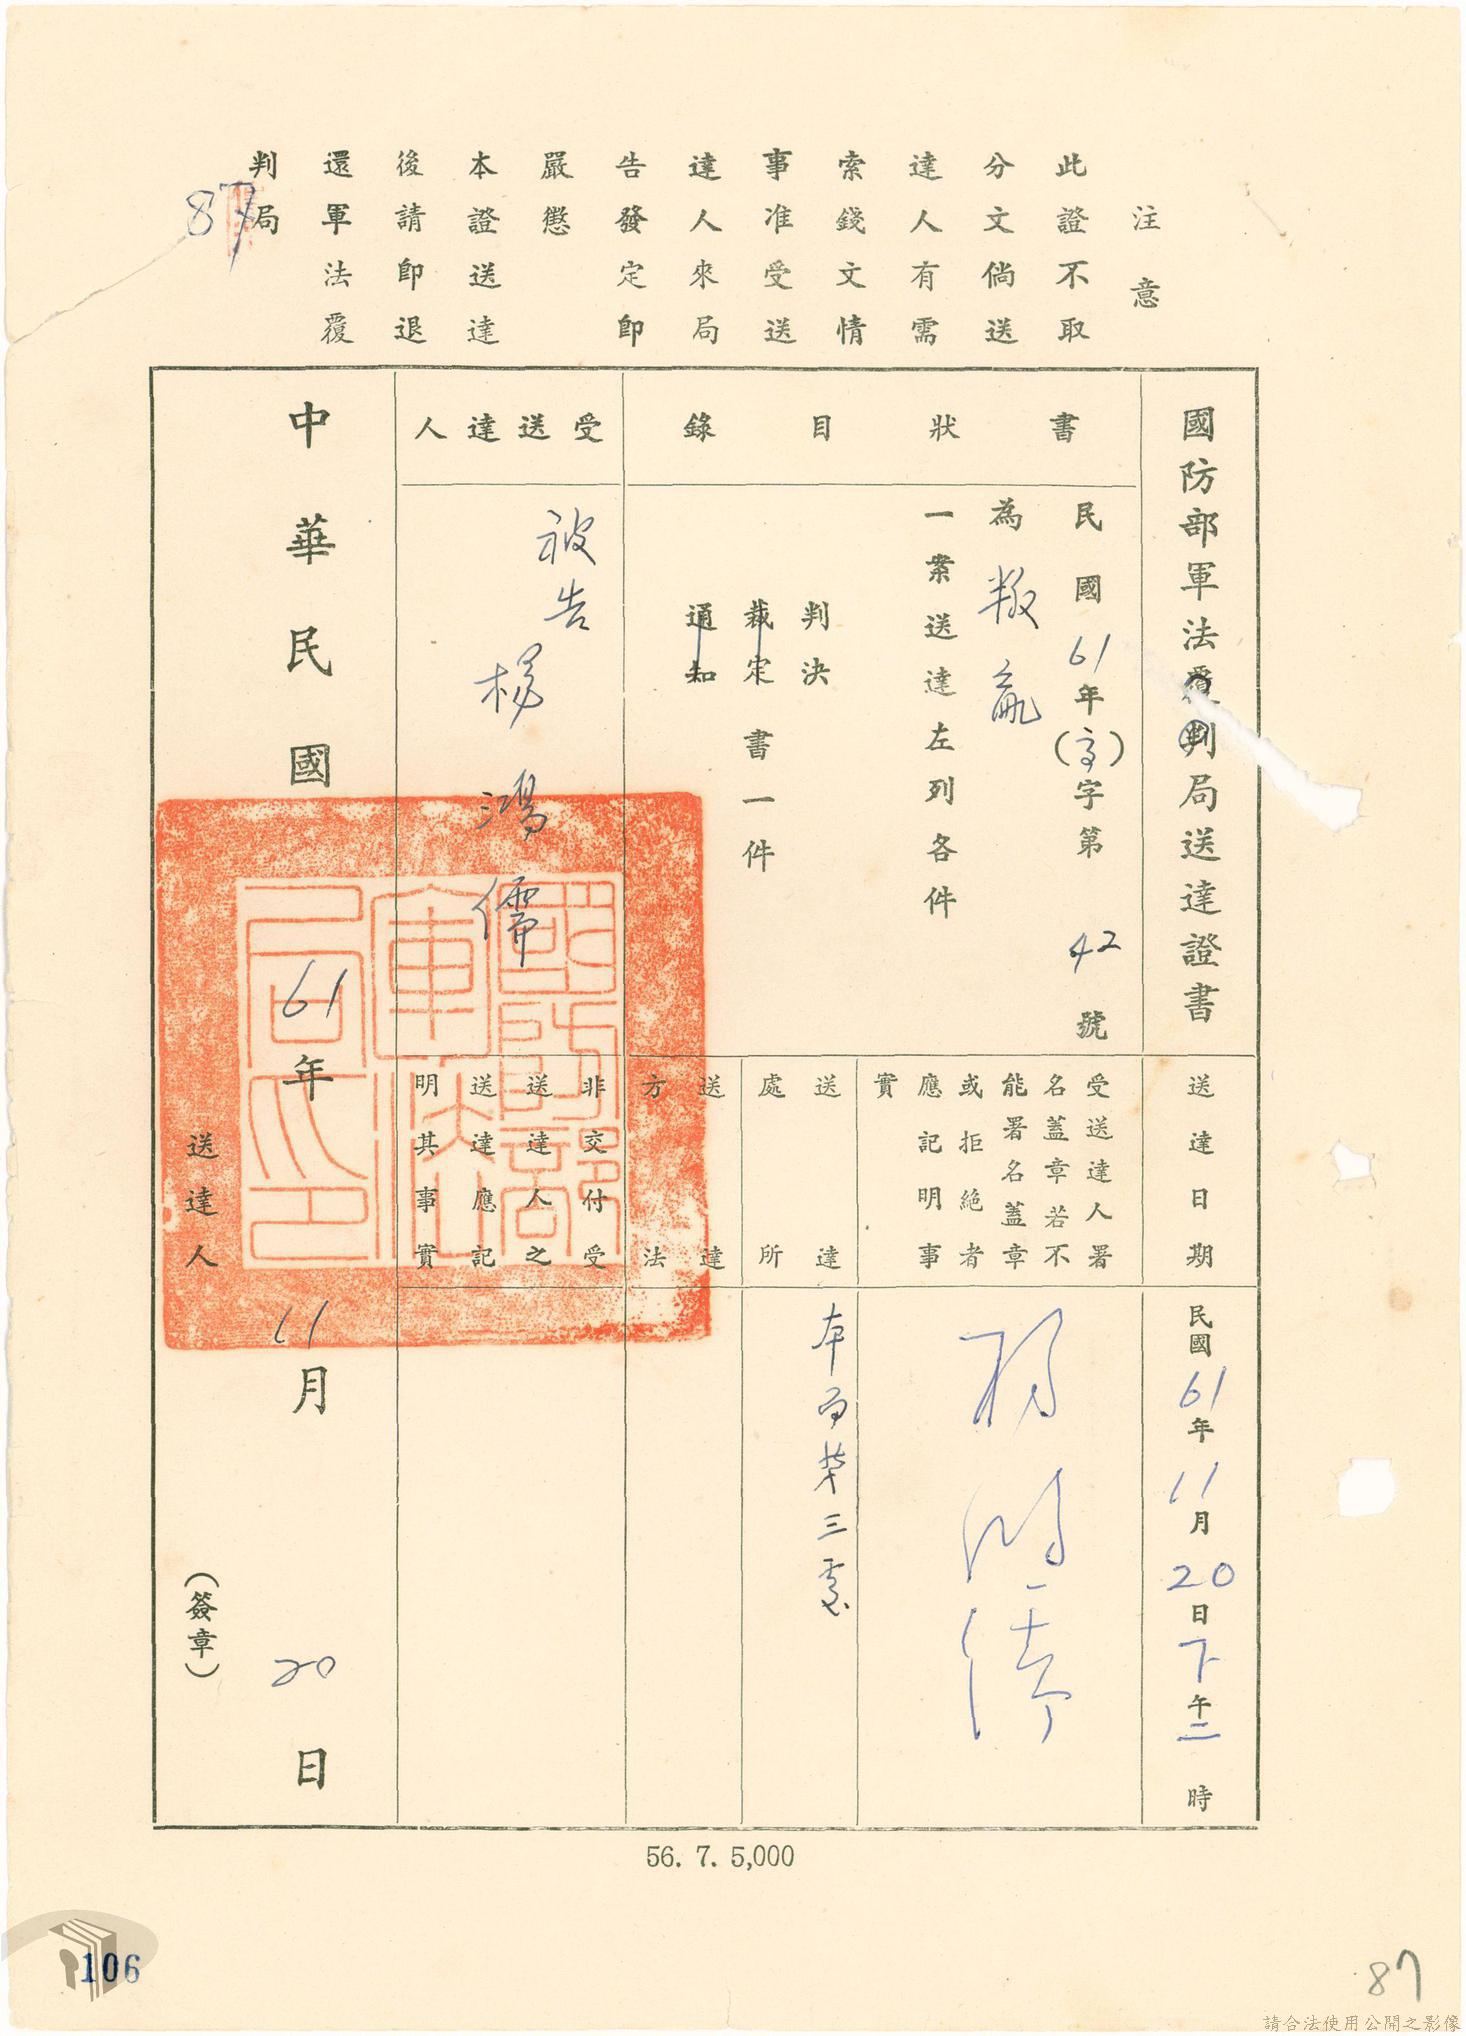 注意
此證不取
分文倘送
達人有需
索錢文情
事准受送
達人來局
告發定即
嚴懲
本證送達
後請即退
還軍法覆
判局
87
國防部軍法覆判局送達證書
書狀目錄
民國61年(高)字第42號
為叛亂
一案送達左列各件
判決
裁定
通知
書一件
受送達人
被告
楊鴻儒
送達日期
民國61年11月20日下午二時
受送達人署
名蓋章若不
能署名蓋章
或拒絕者
應記明事
實
楊鴻儒
送達
處所
本局第三處
送達
方法
非交付受
送達人之
送達應記
明其事實
中華民國61年11月20日
送達人
(簽章)
56. 7. 5,000
106
87
請合法使用公開之影像